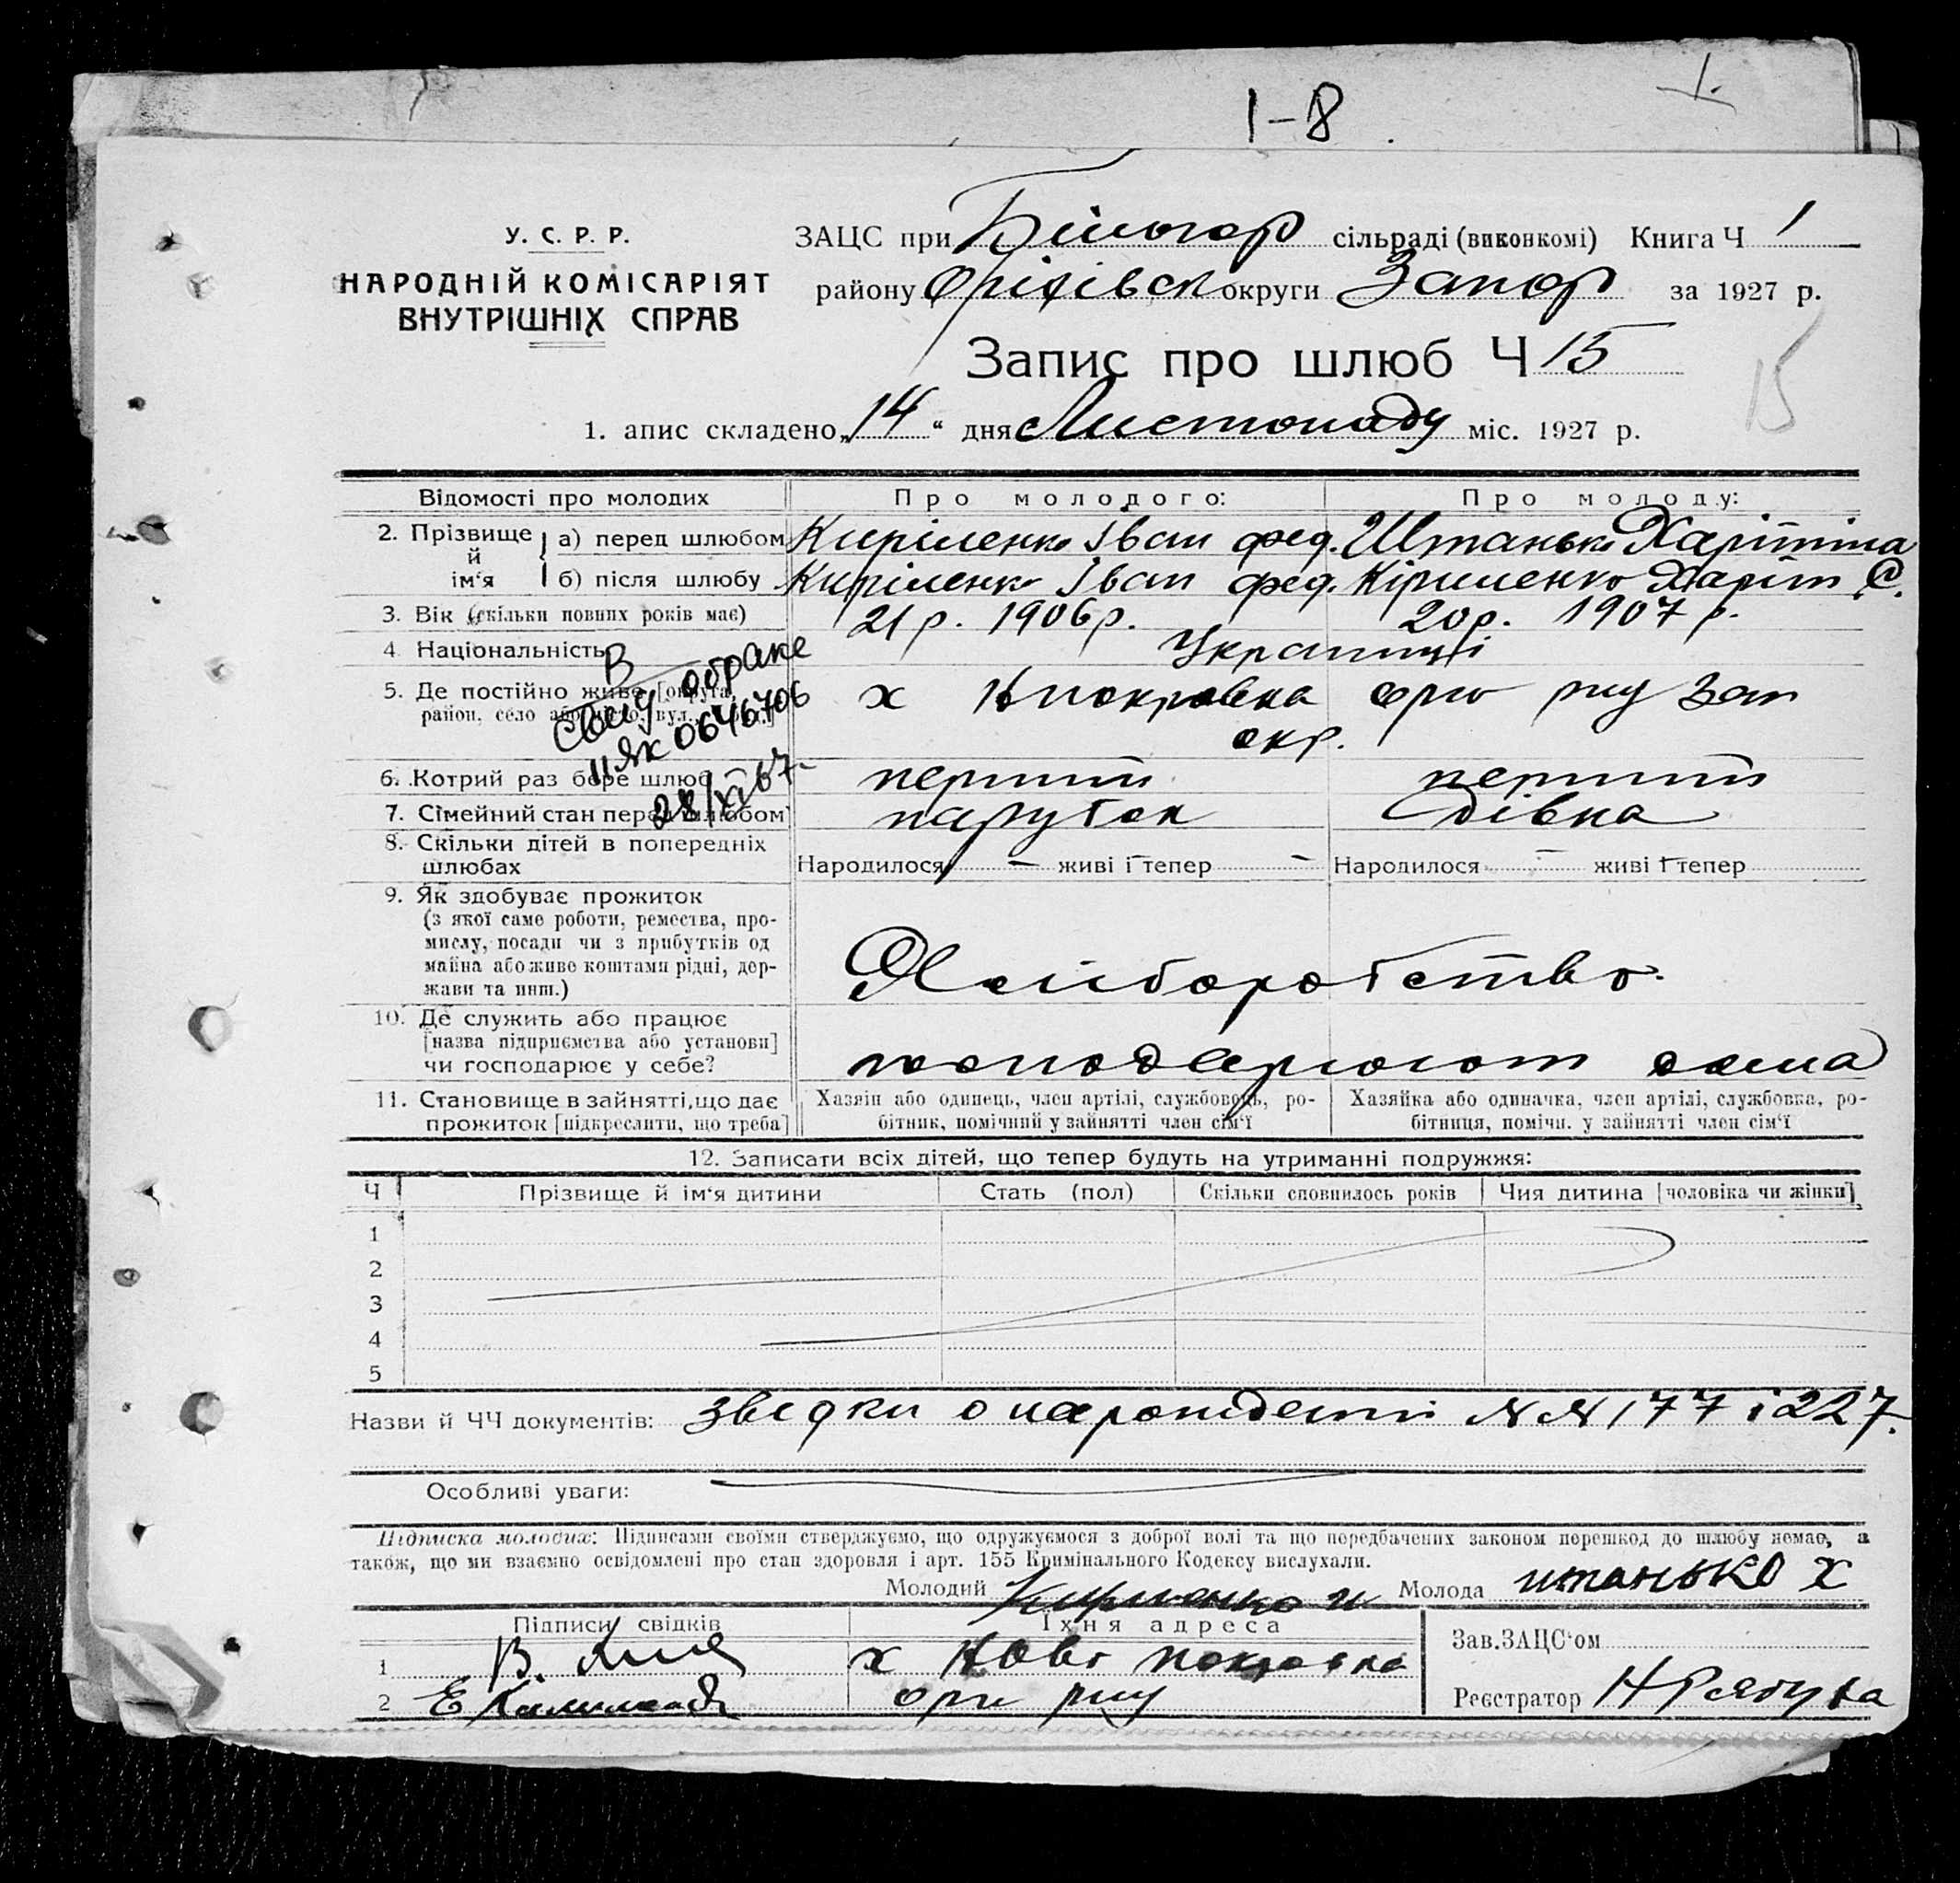 1-8
1.
У. С. Р. Р.
НАРОДНІЙ КОМІСАРІЯТ
ВНУТРІШНІХ СПРАВ
ЗАЦС при Білогор сільраді (виконкомі) Книга Ч 1
району Оріхівск округи Запор за 1927 р.
Запис про шлюб Ч 15
15
1. апис складено „14“ дня Листопаду міс. 1927 р.
Відомості про молодих Про молодого: Про молоду:
2. Прізвище й ім‘я а) перед шлюбом Киріленко Іван фед. Штанько Харітіна
б) після шлюбу Киріленко Іван фед. Кіриленко Харіт С.
3. Вік (скільки повних років має) 21 р. 1906 р. 20 р. 1907 р.
4. Національність Українці
5. Де постійно живе [округа, район, село або місто, вул.
х Н покровка оріх рну Зап
окр.
В
обраке
ІІ ЯК 0646706
28/XI 67
6. Котрий раз бере шлюб перший перший
7. Сімейний стан перед шлюбом парубок дівка
8. Скільки дітей в попередніх шлюбах Народилося — живі і тепер — Народилося — живі і тепер
9. Як здобуває прожиток
(з якої саме роботи, ремества, про-
мислу, посади чи з прибутків од
майна або живе коштами рідні, дер-
жави та инш.)
Хліборобство.
10. Де служить або працює
[назва підприємства або установи]
чи господарює у себе?
господарюют дома
11. Становище в зайнятті, що дає прожиток [підкреслити, що треба]
Хазяін або одинець, член артілі, службовець, ро-
бітник, помічний у зайнятті член сім‘ї
Хазяйка або одиначка, член артілі, службовка, ро-
бітниця, помічн. у зайнятті член сім‘ї
12. Записати всіх дітей, що тепер будуть на утриманні подружжя:
Ч Прізвище й ім‘я дитини Стать (пол) Скільки сповнилось років Чия дитина [чоловіка чи жінки]
1
2
3
4
5
Назви й ЧЧ документів: звідки о народженні № № 177 і 227.
Особливі уваги:
Підписка молодих: Підписами своїми стверджуємо, що одружуємося з доброї волі та що передбачених законом перешкод до шлюбу немає, а
також, що ми взаємно освідомлені про стан здоровля і арт. 155 Кримінального Кодексу вислухали.
Молодий Кириленко и Молода штанько Х
Підписи свідків Їхня адреса
1 В. х Ново покровка
2 Е оріх рну
Зав. ЗАЦС‘ом
Реєстратор Н Рябуха